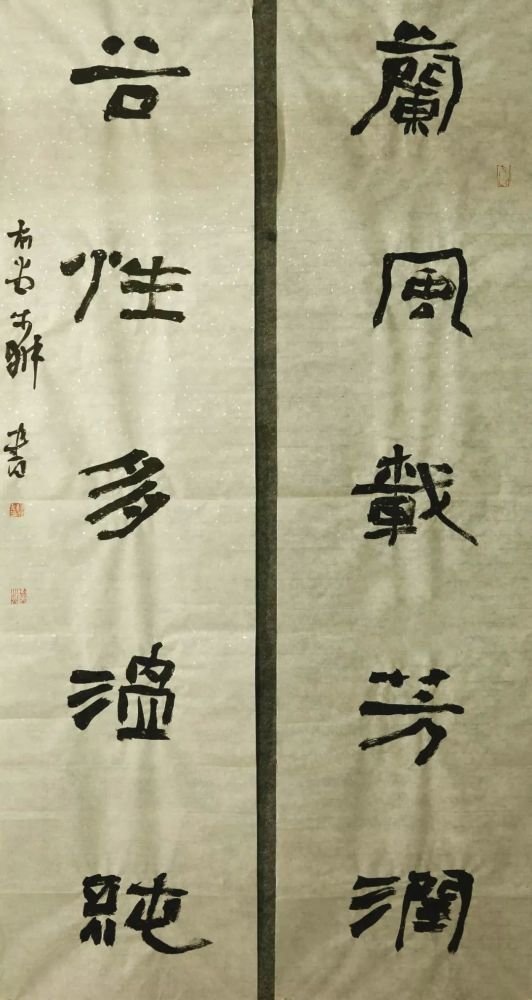 蘭風載芳潤
谷性多溫純
書